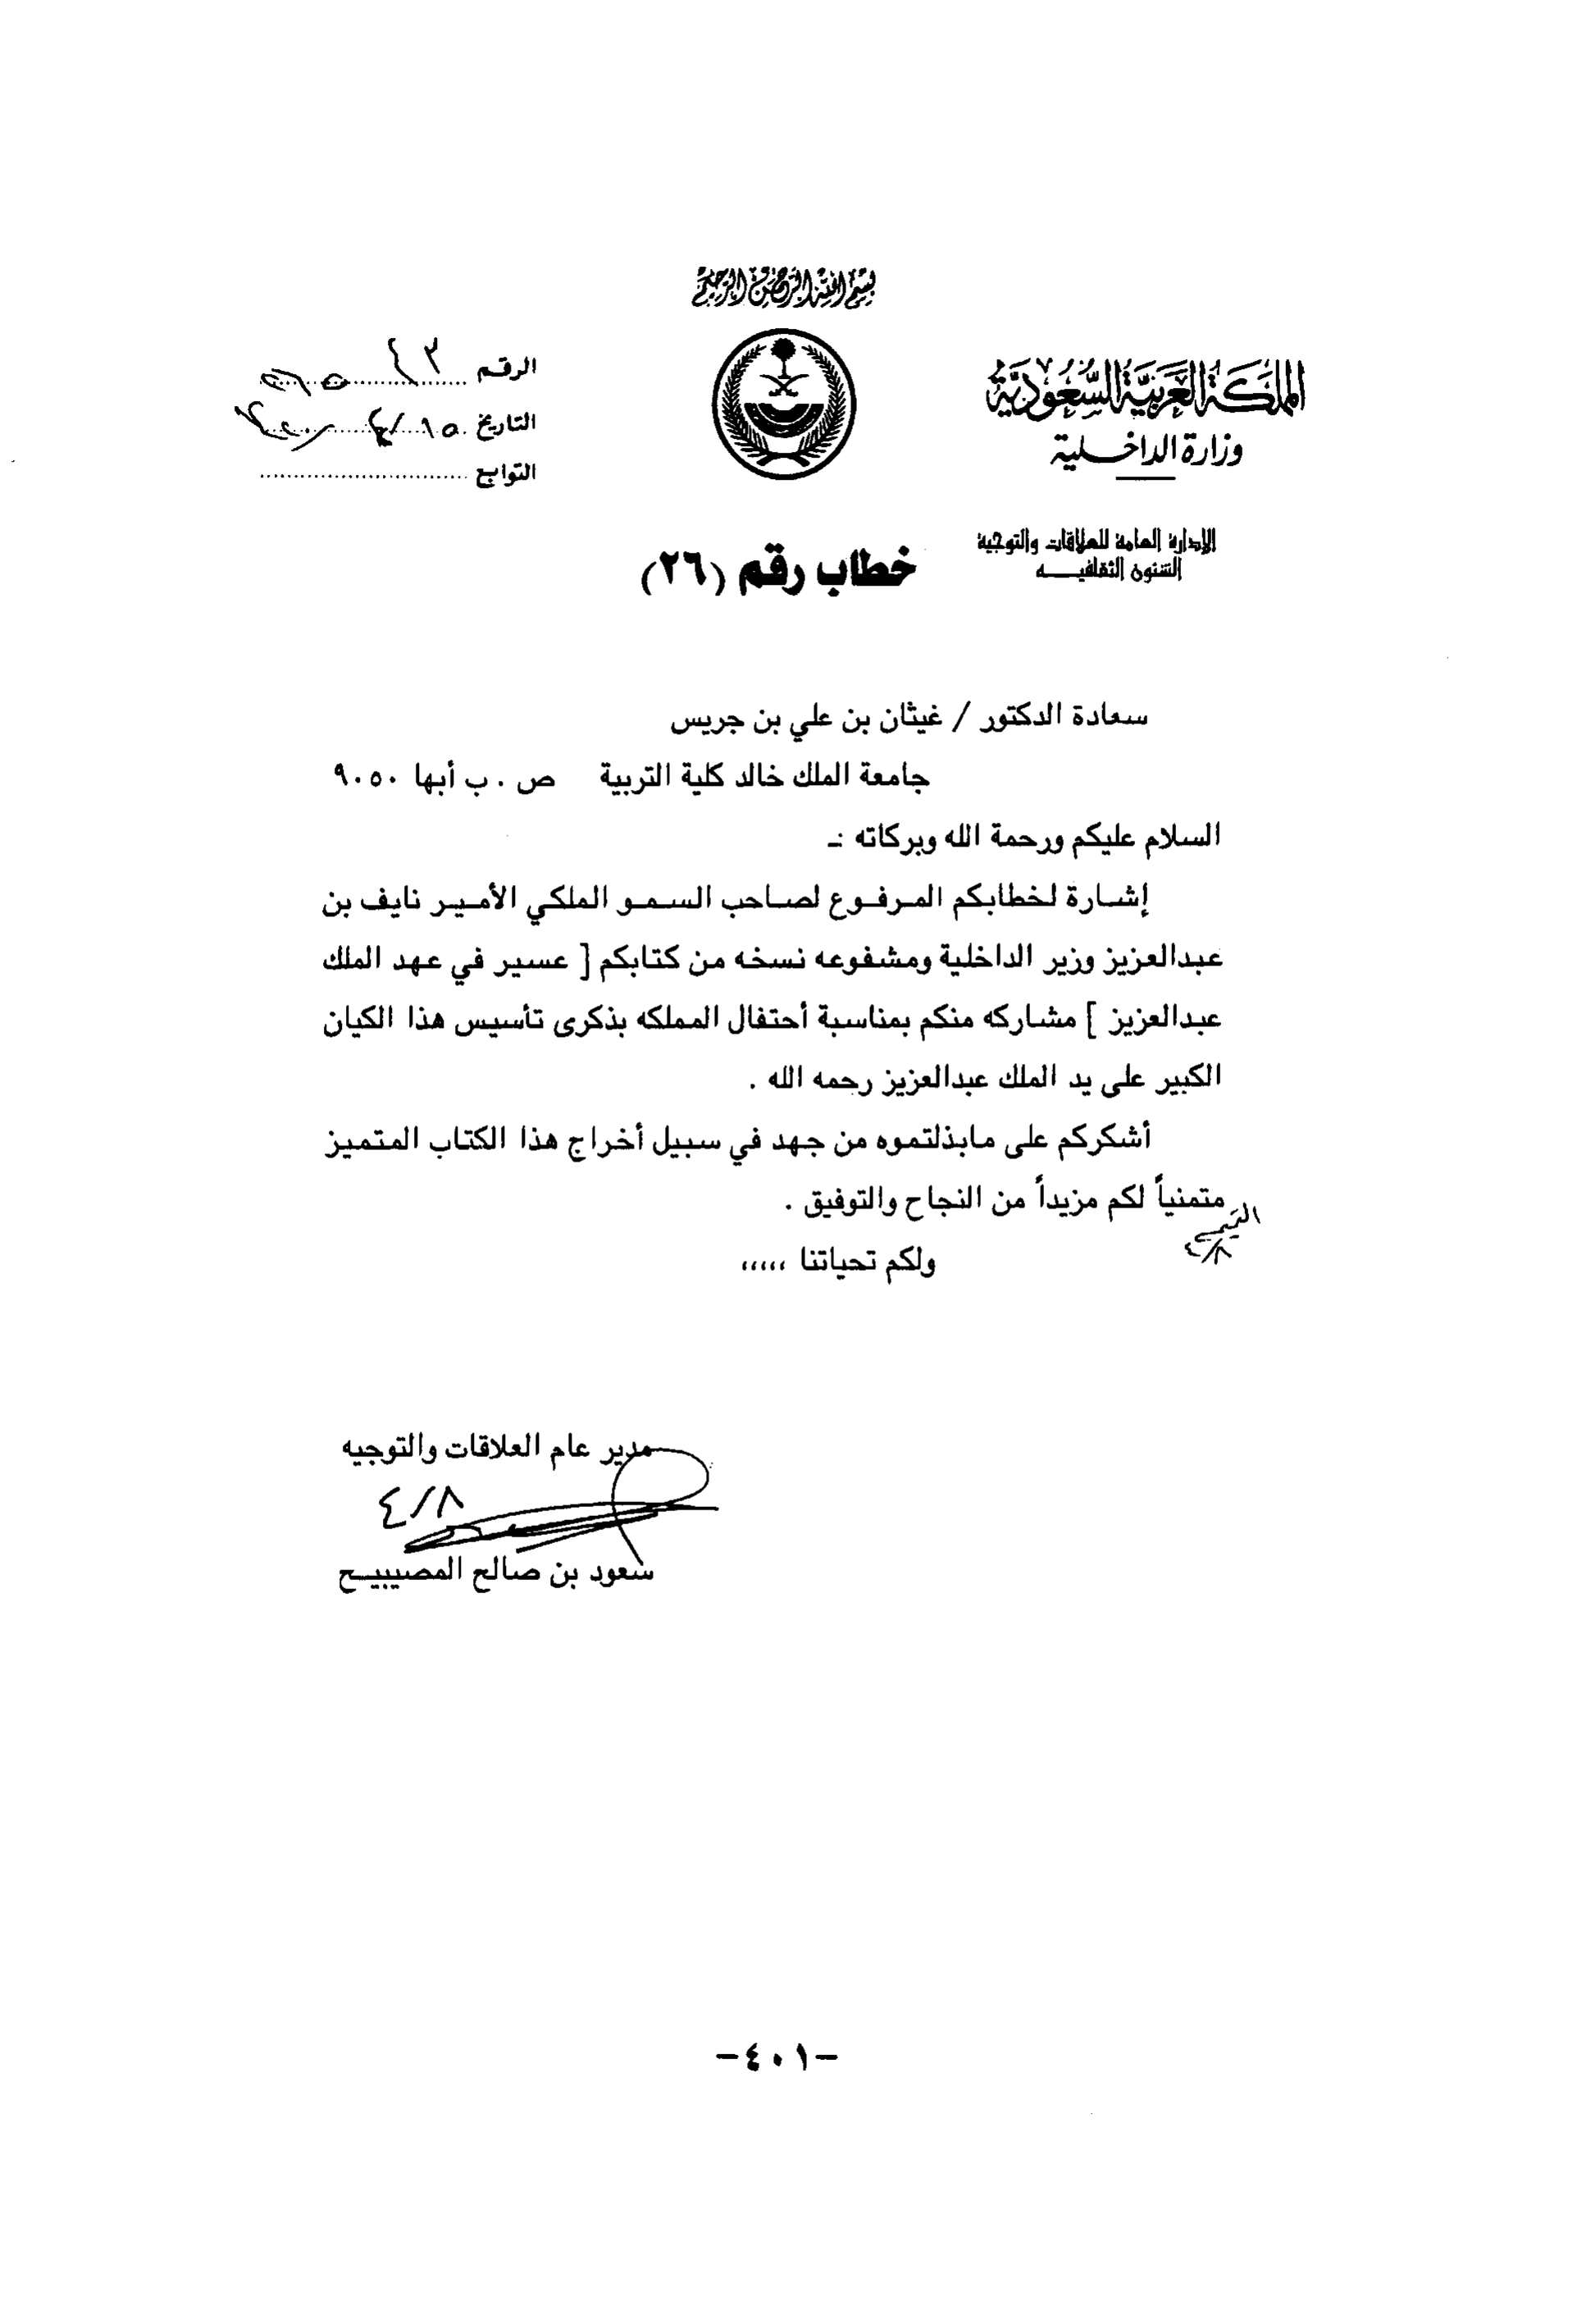 بسم الله الرحمن الرحيم
المملكة العربية السعودية
وزارة الداخلية
الإدارة العامة للعلاقات والتوجيه
الشئون الثقافيـــه
الرقم
التاريخ ١٥/٤/
التوابع
خطاب رقم (٢٦)
سعادة الدكتور / غيثان بن علي بن جريس
جامعة الملك خالد كلية التربية ص . ب أبها ٩٠٥٠
السلام عليكم ورحمة الله وبركاته :ـ
إشارة لخطابكم المرفوع لصاحب السمو الملكي الأمير نايف بن
عبدالعزيز وزير الداخلية ومشفوعه نسخه من كتابكم [ عسير في عهد الملك
عبدالعزيز ] مشاركه منكم بمناسبة أحتفال المملكه بذكرى تأسيس هذا الكيان
الكبير على يد الملك عبدالعزيز رحمه الله .
أشكركم على مابذلتموه من جهد في سبيل أخراج هذا الكتاب المتميز
متمنياً لكم مزيداً من النجاح والتوفيق .
ولكم تحياتنا ،،،،،
٤/٨
مدير عام العلاقات والتوجيه
٤/٨
سعود بن صالح المصيبيـح
-٤٠١-